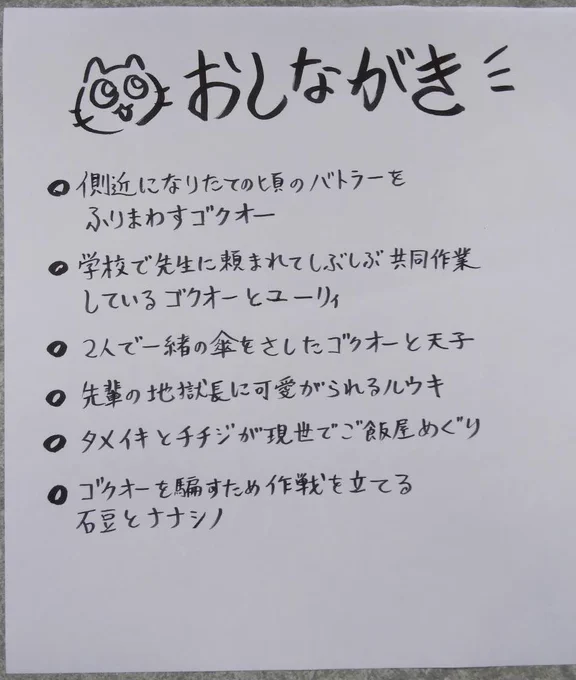 おしながき
側近になりたての頃のバトラーを
ふりまわすゴクオー
学校で先生に頼まれてしぶしぶ共同作業
しているゴクオーとユーリィ
2人で一緒の傘をさしたゴクオーと天子
先輩の地獄長に可愛がられるルウキ
タメイキとチチジが現世でご飯屋めぐり
ゴクオーを騙すため作戦を立てる
石豆とナナシノ